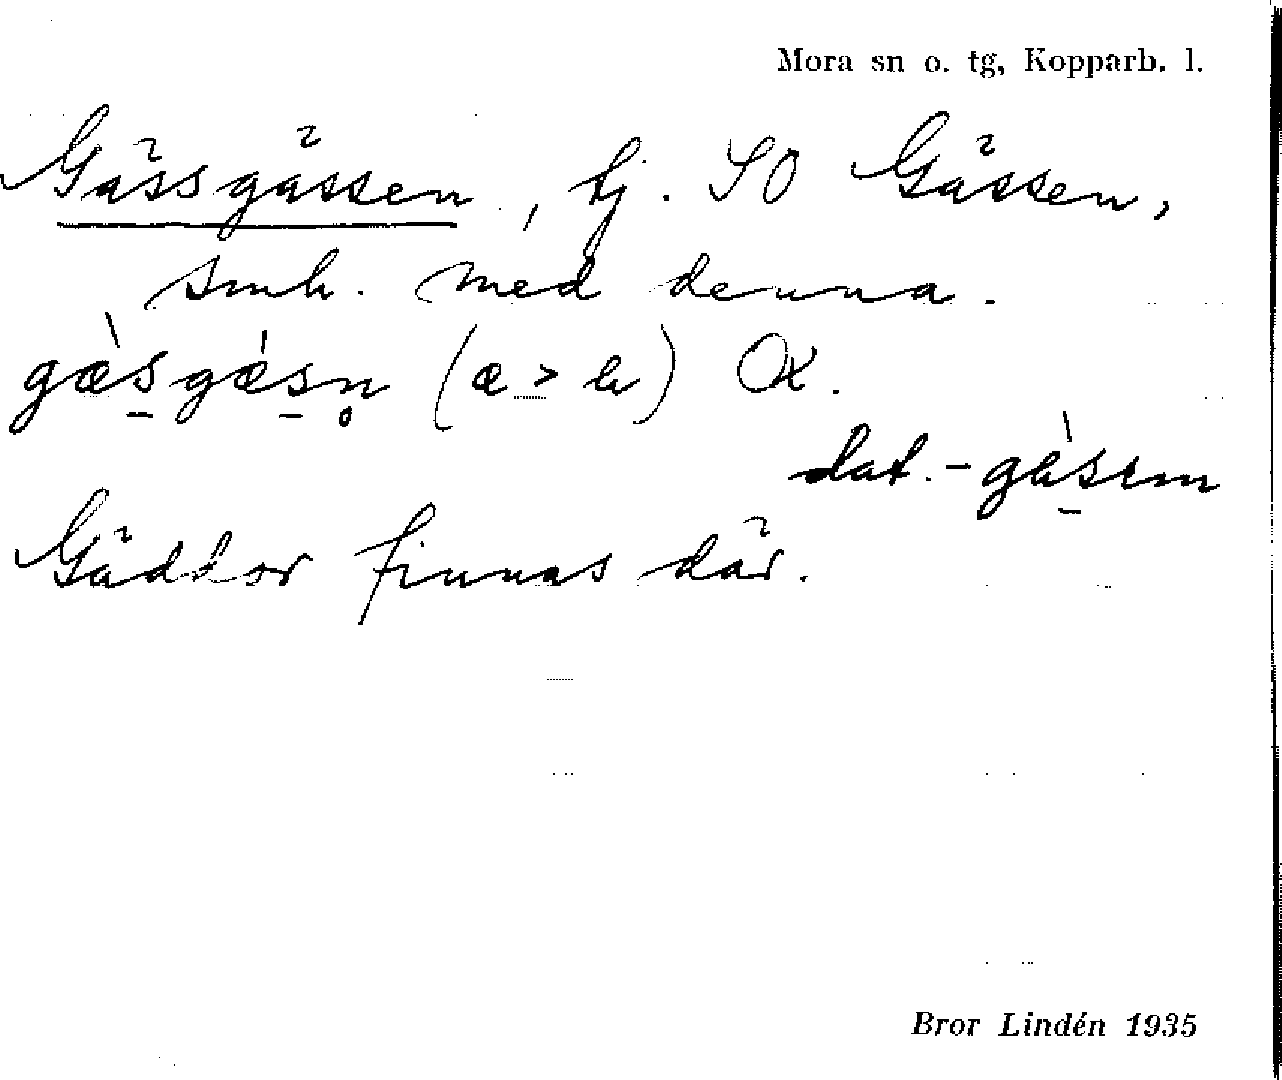 Mora sn o. tg, Kopparb. l.
Gässgässen, tj. SO Gässen,
smh. med denna.
gæ̀s̱gæ̀s̱n̥ (æ > ä) Ox.
dat. -gäs̱em
Gäddor finnas där.
Bror Lindén 1935